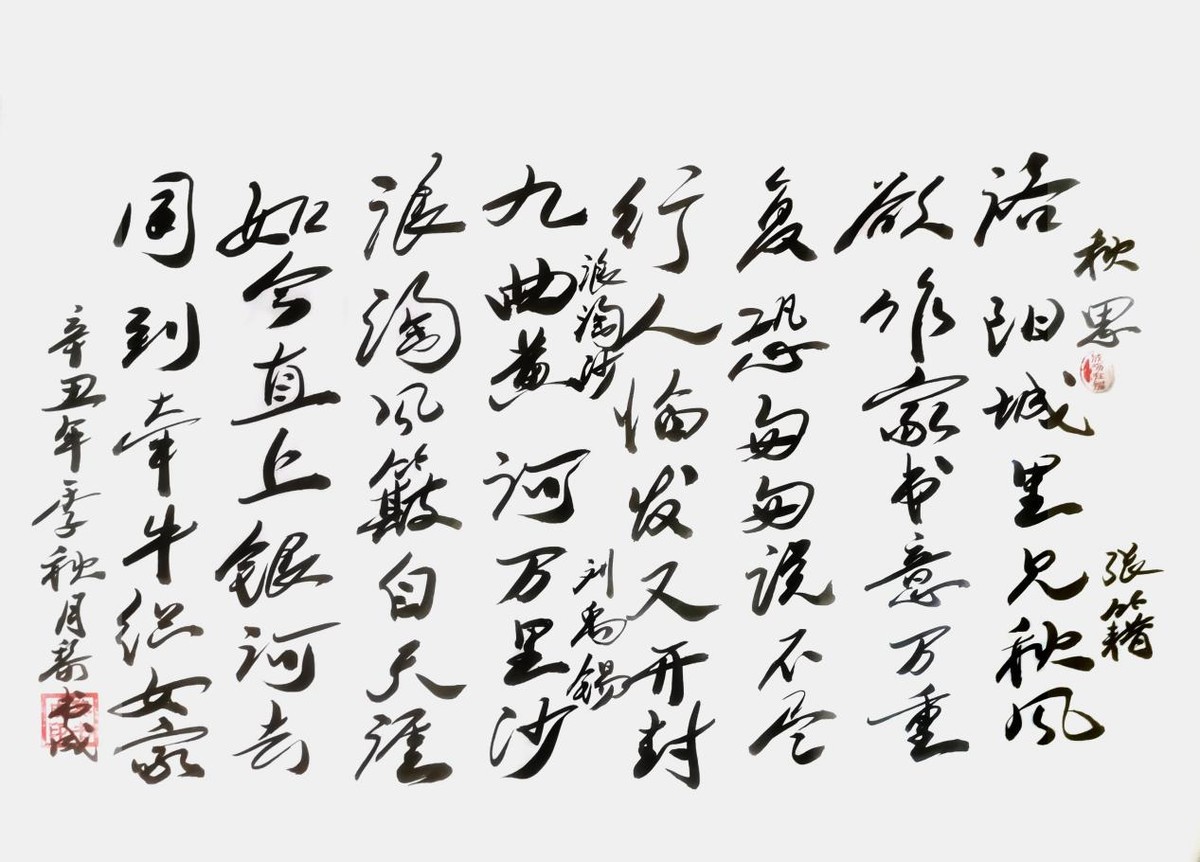 秋思 張籍
洛阳城里见秋风
欲作家书意万重
复恐匆匆说不尽
行人临发又开封
浪淘沙 刘禹锡
九曲黄河万里沙
浪淘风簸自天涯
如今直上银河去
同到牵牛织女家
辛丑年季秋月书成